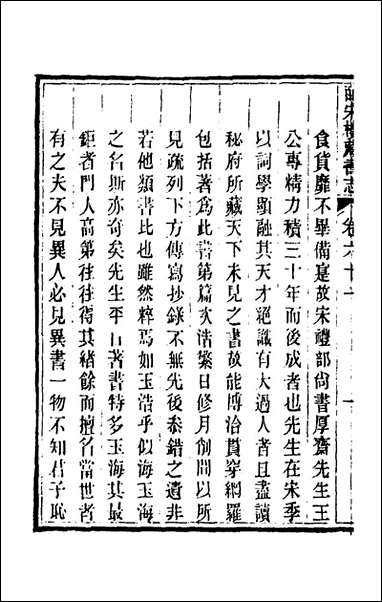 皕宋樓藏書志 卷六十
食貨靡不畢備寔故宋禮部尚書厚齋先生王
公專精力積三十年而後成者也先生在宋季
以詞學顯融其天才絕識有大過人者且盡讀
秘府所藏天下未見之書故能博洽貫穿網羅
包括著為此書第篇次浩繁日修月削間以所
見疏列下方傳寫抄錄不無先後叅錯之遺非
若他類書比也雖然粹焉如玉浩乎似海玉海
之名斯亦奇矣先生平日著書特多玉海其最
鉅者門人高第往往得其緒餘而擅名當世者
有之夫不見異人必見異書一物不知君子恥